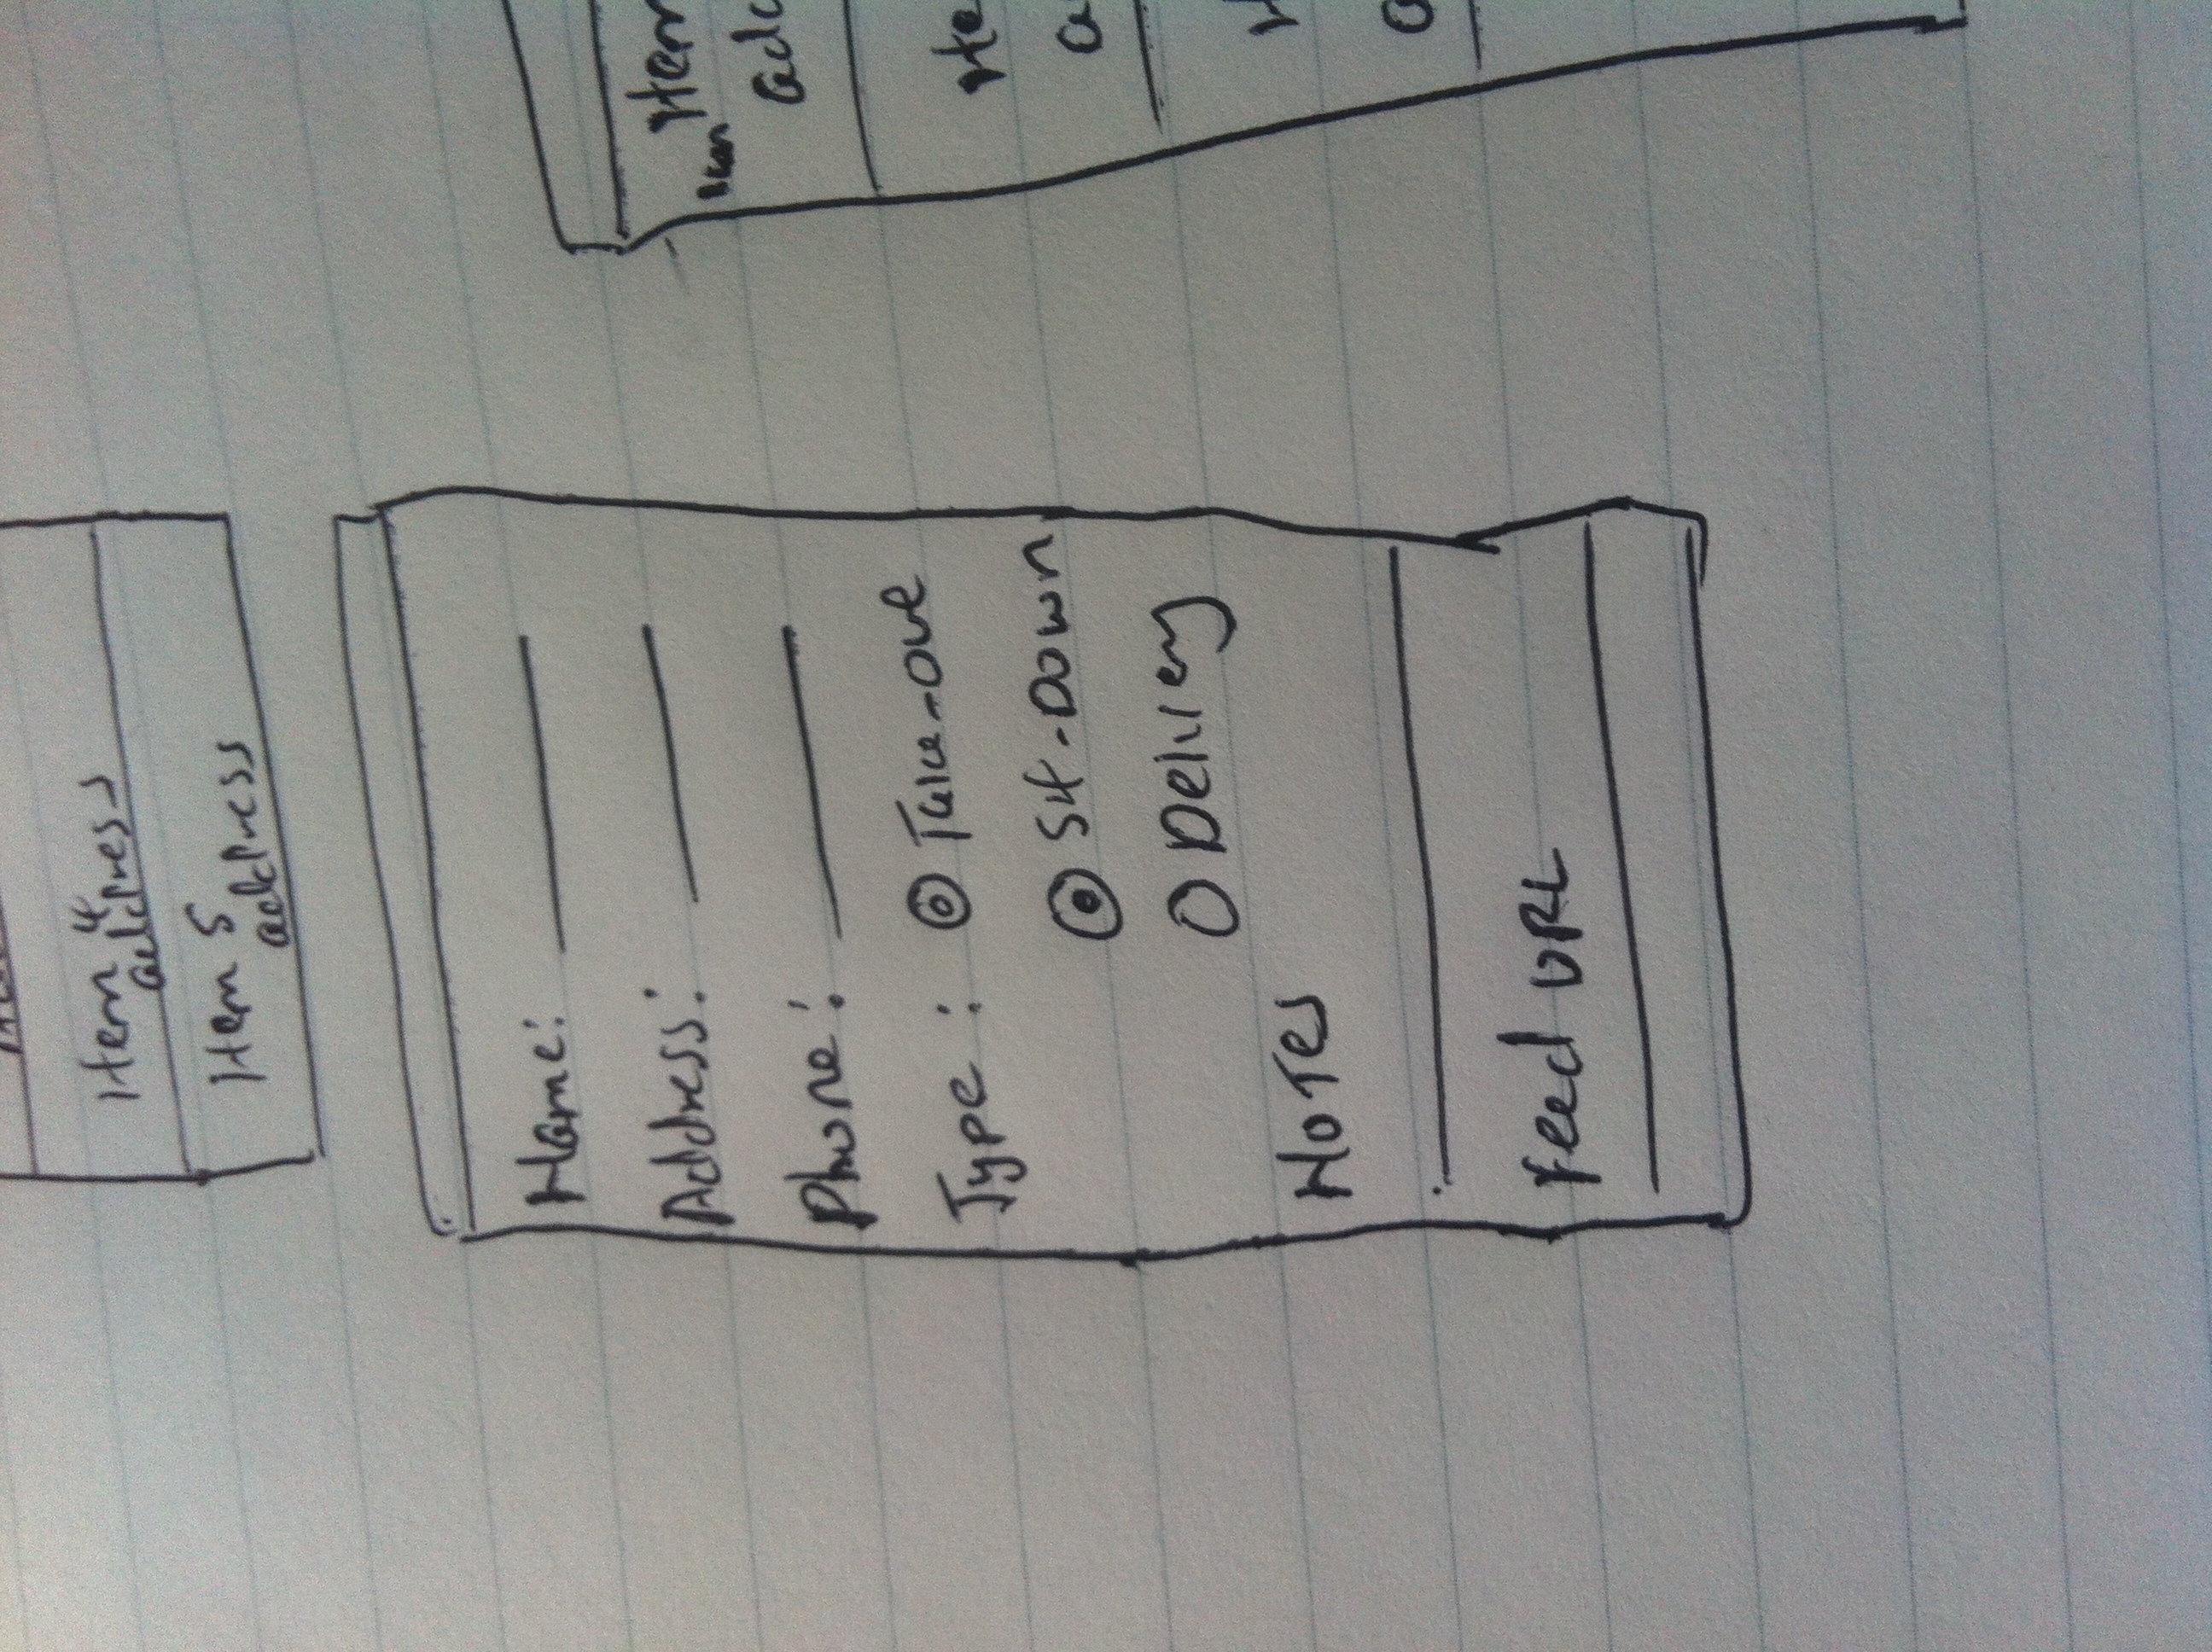 Item 4
address
Item 5
address
Name:
Address:
Phone:
Type: Take-out
Sit-Down
Delivery
Notes
Feed URL
Item